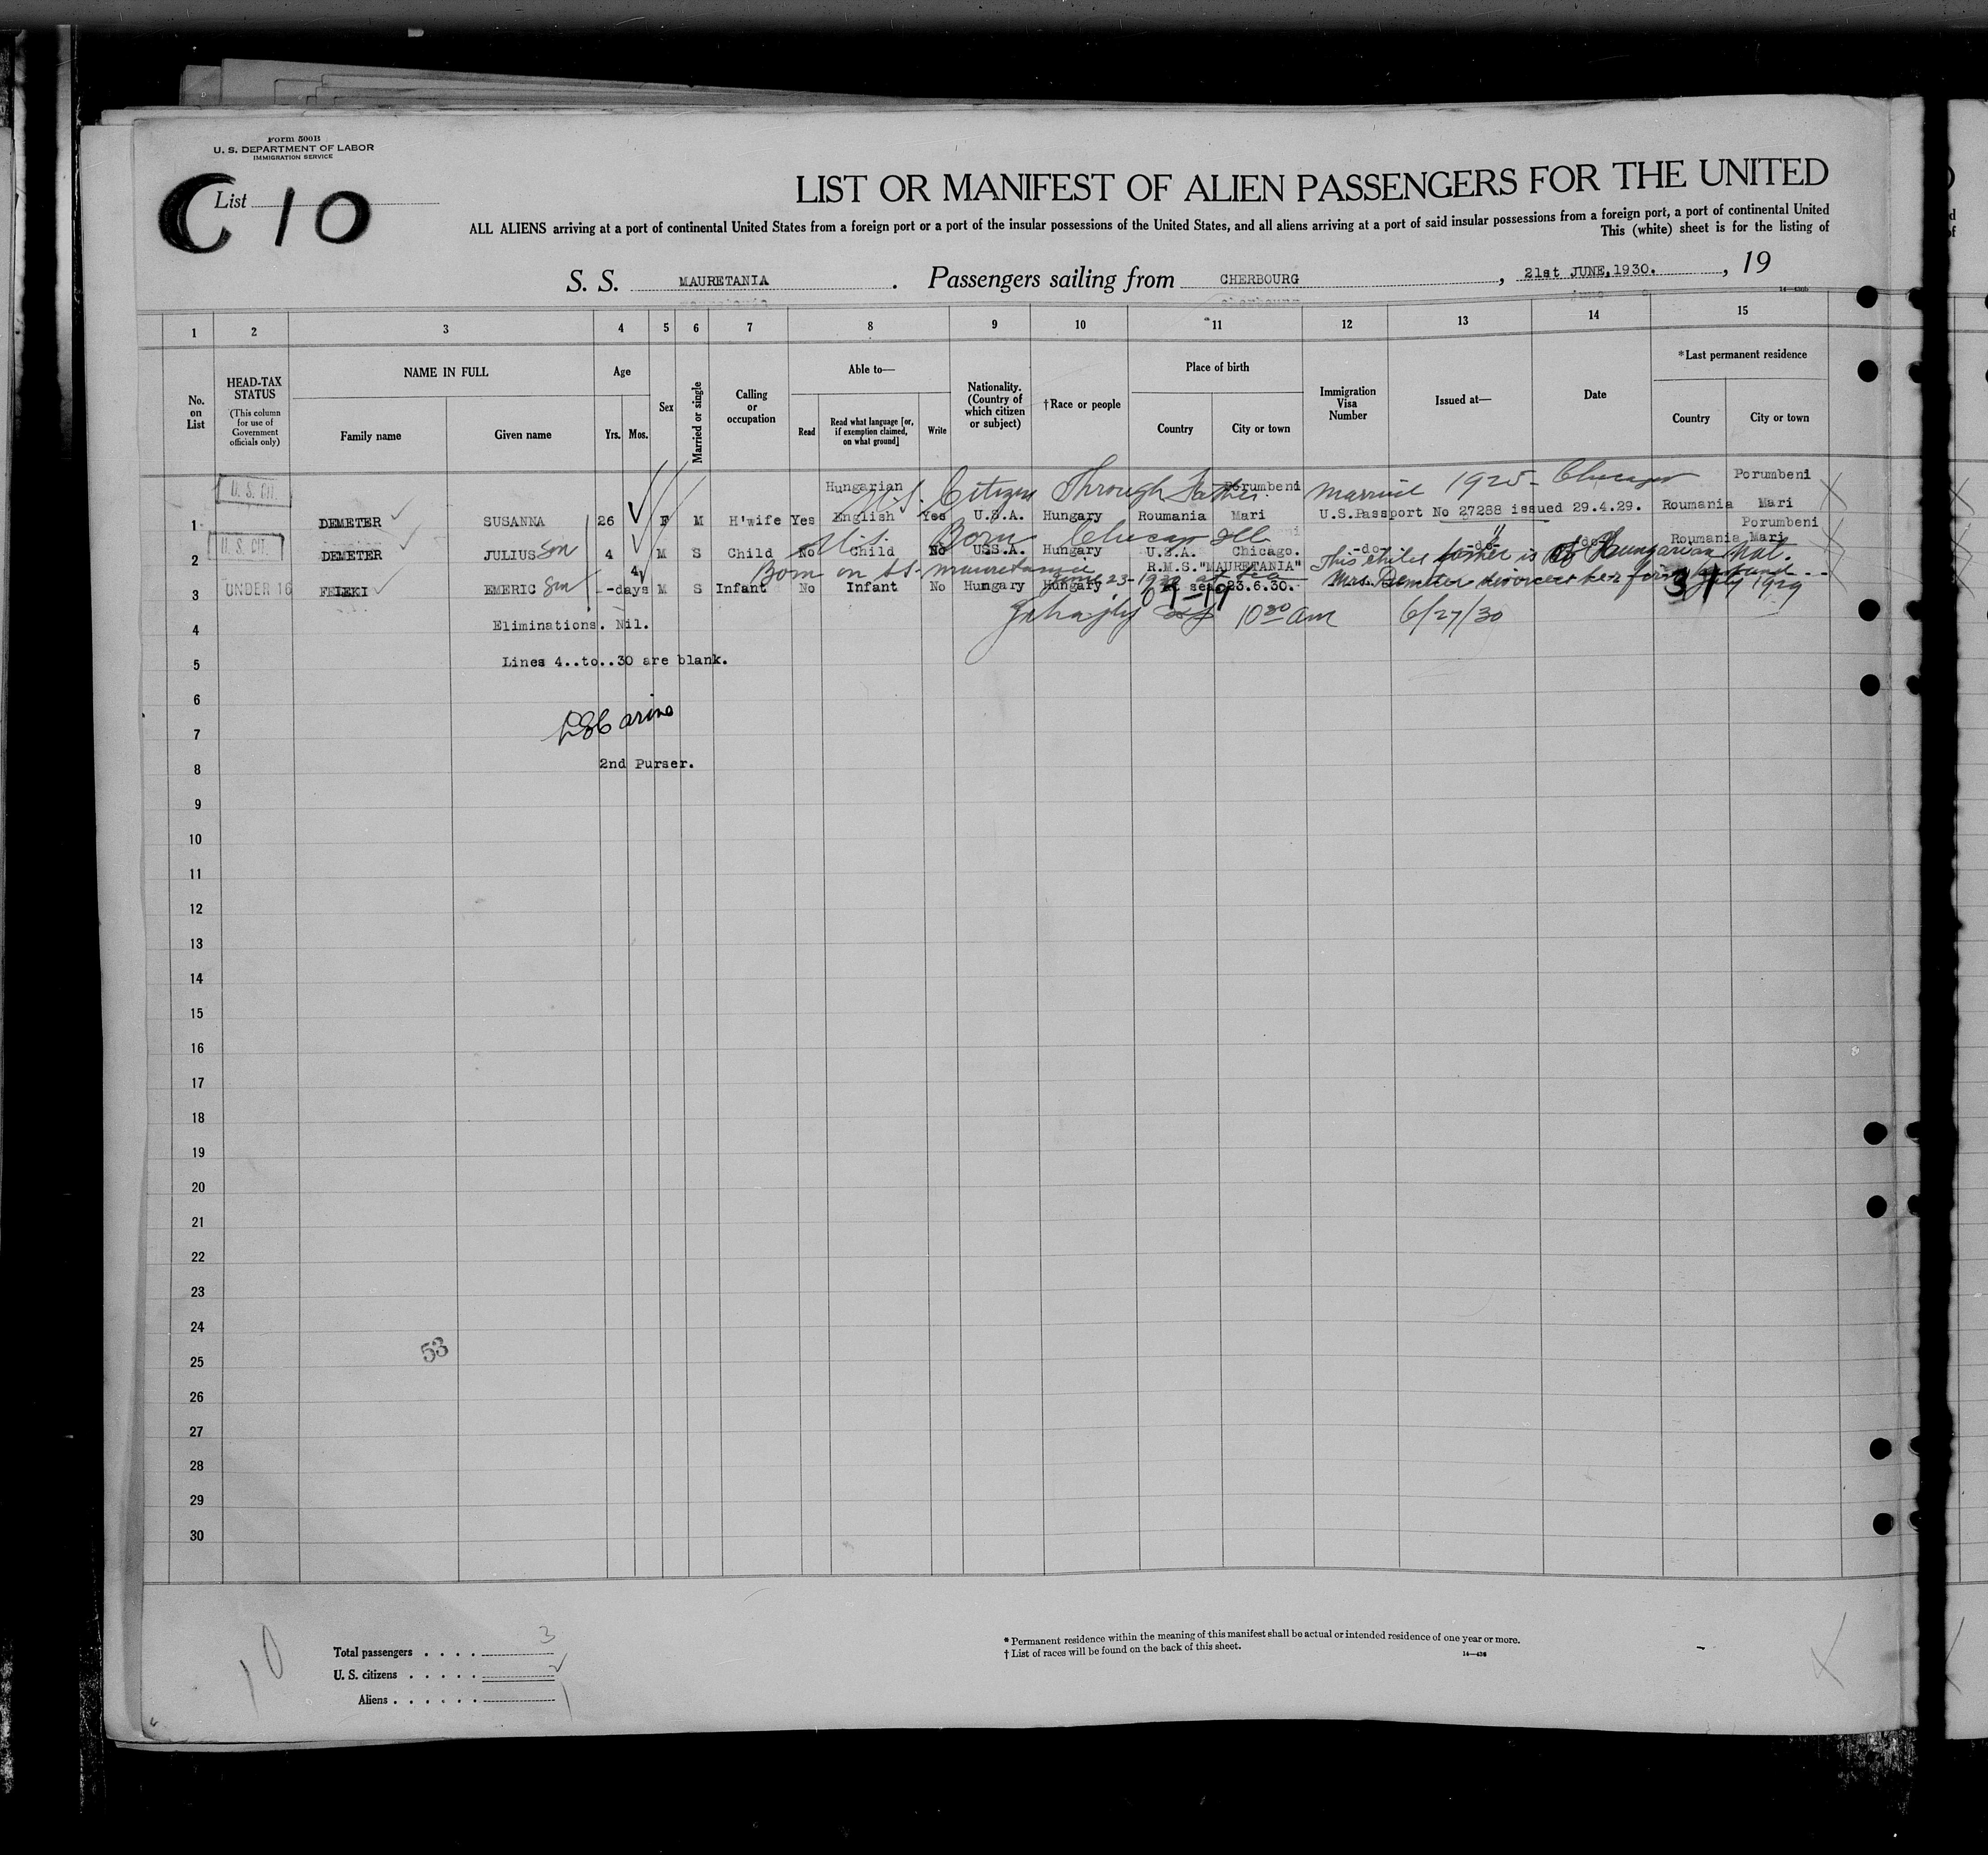 Form 500B
U. S. DEPARTMENT OF LABOR
IMMIGRATION SERVICE
List C 10
LIST OR MANIFEST OF ALIEN PASSENGERS FOR THE UNITED
ALL ALIENS arriving at a port of continental United States from a foreign port or a port of the insular possessions of the United States, and all aliens arriving at a port of said insular possessions from a foreign port, a port of continental United
This (white) sheet is for the listing of
S. S. MAURETANIA. Passengers sailing from CHERBOURG, 21st JUNE,1930., 19
1 2 3 4 5 6 7 8 9 10 11 12 13 14 15
No. on List
HEAD-TAX STATUS
(This column for use of Government officials only)
NAME IN FULL
Family name
Given name
Age
Yrs. Mos.
Sex
Married or single
Calling or occupation
Able to—
Read
Read what language [or, if exemption claimed, on what ground]
Write
Nationality. (Country of which citizen or subject)
†Race or people
Place of birth
Country
City or town
Immigration Visa Number
Issued at—
Date
*Last permanent residence
Country
City or town
U. S. CIT. Hungarian U.S. Citizen Through Father. Porumbeni Married 1925 - Chicago Porumbeni
1 DEMETER SUSANNA 26 F M H'wife Yes English Yes U.S.A. Hungary Roumania Mari U.S.Passport No 27288 issued 29.4.29. Roumania Mari
U. S. CIT. U.S. Born Chicago Ill Porumbeni
2 DEMETER JULIUS Son 4 M S Child No Child No USS.A. Hungary U.S.A. Chicago. -do- -do- -do- Roumania Mari
Born on SS. Mauretania June 23-1930 at sea R.M.S."MAURETANIA" This childs father is of Hungarian Nat.
3 UNDER 16 FELEKI EMERIC Son 4 -days M S Infant No Infant No Hungary Hungary At sea 23.6.30. Mrs. Demeter divorced her former husband July 1929
4 Eliminations. Nil. 10 30 am 6/27/30
5 Lines 4..to..30 are blank.
6
7
8 2nd Purser.
9
10
11
12
13
14
15
16
17
18
19
20
21
22
23
24
53
25
26
27
28
29
30
10
Total passengers 3
U. S. citizens 2
Aliens 1
* Permanent residence within the meaning of this manifest shall be actual or intended residence of one year or more.
† List of races will be found on the back of this sheet.
14—436